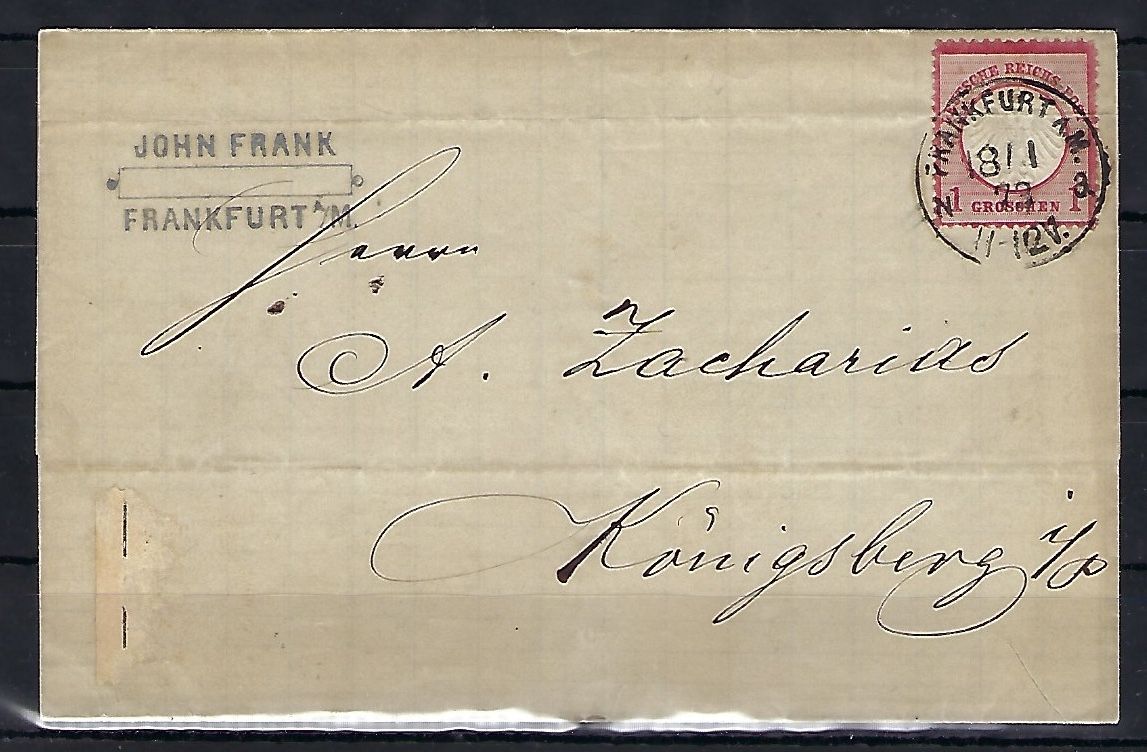 JOHN FRANK
FRANKFURT A/M.
DEUTSCHE REICHS-PO
1 GROSCHEN 1
FRANKFURT A.M.
18/1
73
11-12V.
Herrn
A. Zacharias
Königsberg i/p